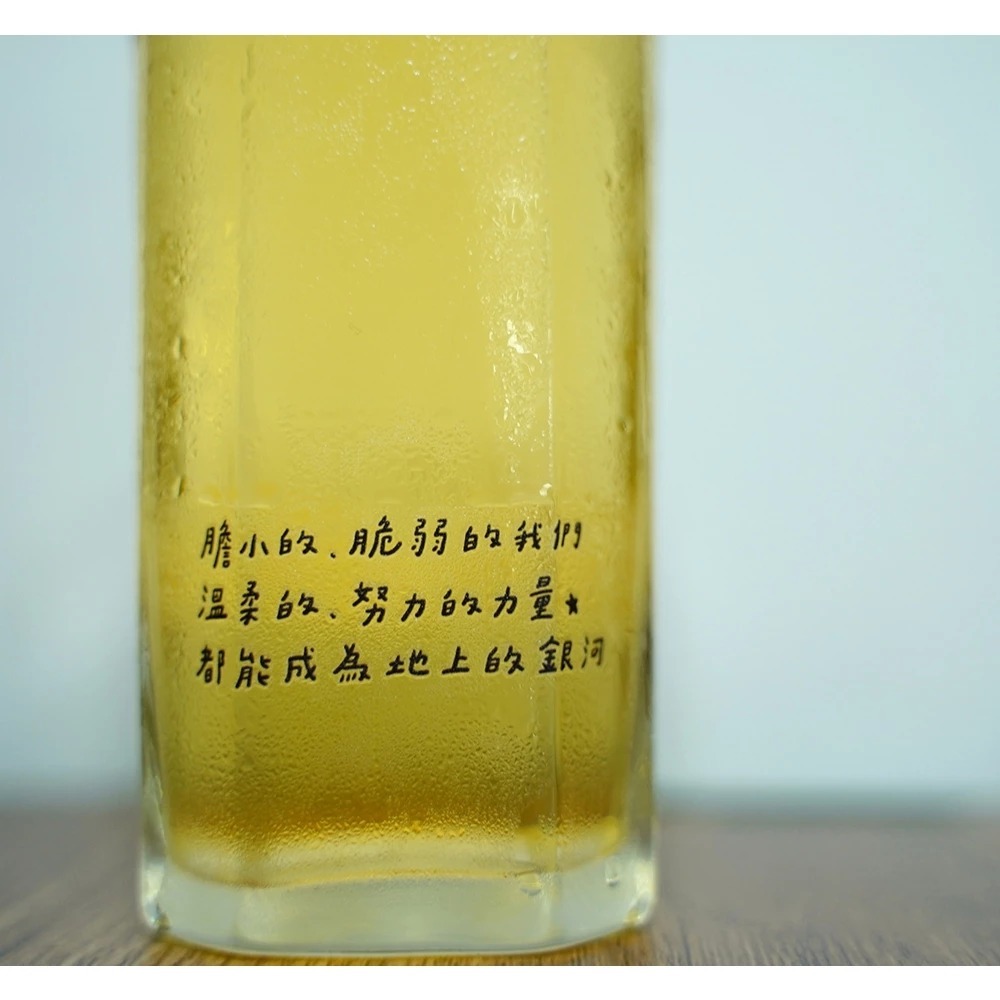 膽小的、脆弱的我們
溫柔的、努力的力量★
都能成為地上的銀河